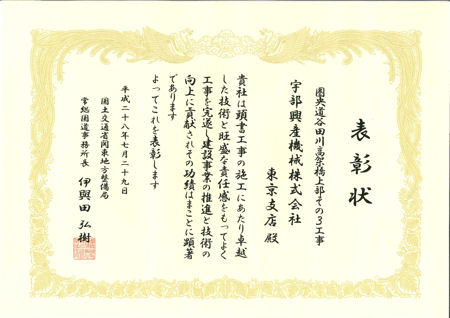 表彰状
圏央道谷田川高架橋上部その3工事
宇部興産機械株式会社
東京支店 殿
貴社は頭書工事の施工にあたり卓越
した技術と旺盛な責任感をもってよく
工事を完遂し建設事業の推進と技術の
向上に貢献されその功績はまことに顕著
であります
よってこれを表彰します
平成二十八年七月二十九日
国土交通省関東地方整備局
常総国道事務所長 伊與田 弘樹